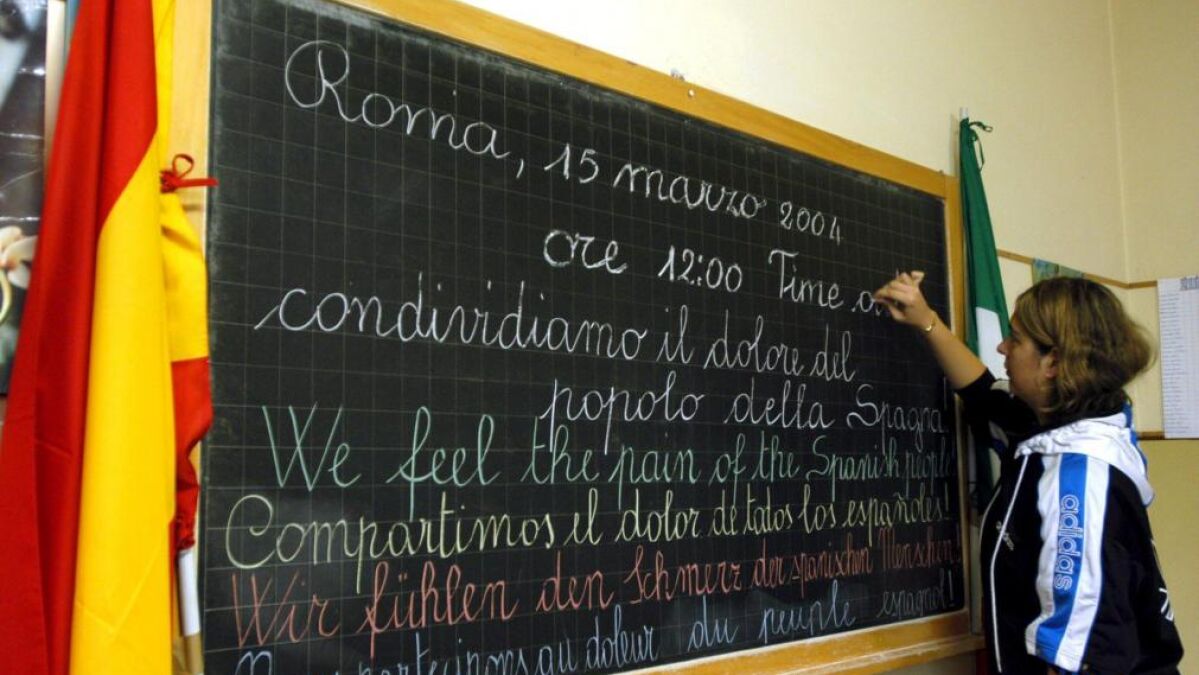 Roma, 15 marzo 2004
ore 12:00 Time
condividiamo il dolore del
popolo della Spagna!
We feel the pain of the Spanish people
Compartimos el dolor de todos los españoles!
Wir fühlen den Schmerz der spanischen Menschen!
au doleur du peuple espagnol!
adidas